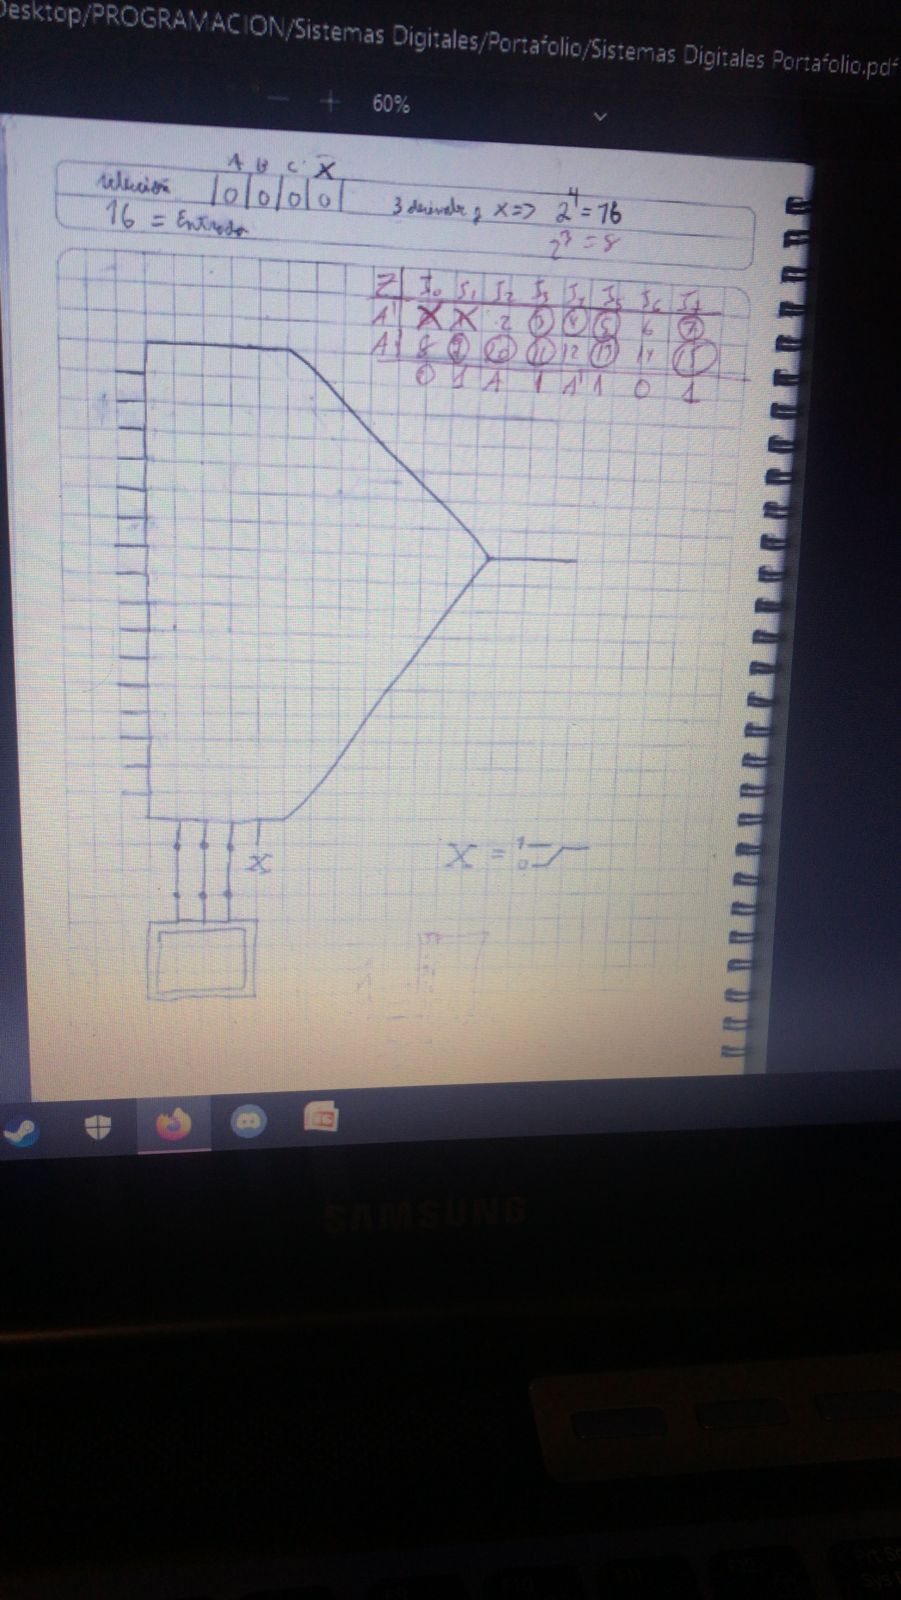 Desktop/PROGRAMACION/Sistemas Digitales/Portafolio/Sistemas Digitales Portafolio.pdf
— + 60%
A B C X
selección 0 0 0 0 3 X => 2⁴ = 16
16 = Entrada 2³ = 8
Z I₀ I₁ I₂ I₃ I₄ I₅ I₆ I₇
A' X X 2 3 4 5 6 7
A 8 9 10 11 12 13 14 15
0 1 A 1 A' 1 0 1
X
X = 1
0
SAMSUNG